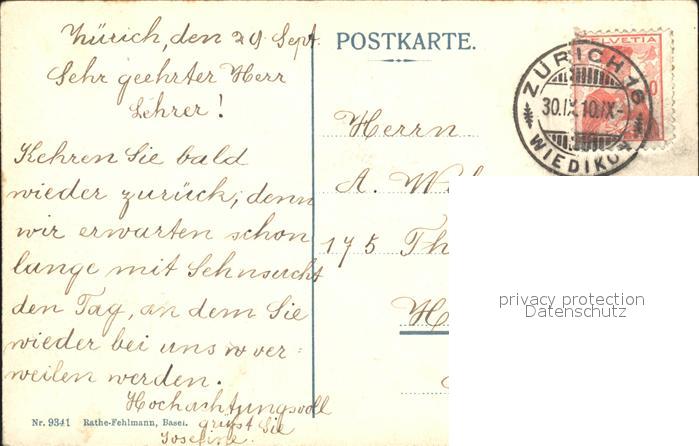 Zürich, den 29. Sept.
Sehr geehrter Herr
Lehrer!
Kehren Sie bald
wieder zurück, denn
wir erwarten schon
lange mit Sehnsucht
den Tag, an dem Sie
wieder bei uns w ver=
weilen werden.
Hochachtungsvoll
grüsst Sie
Josefine.
Nr. 9341 Rathe-Fehlmann, Basel.
POSTKARTE.
HELVETIA
ZÜRICH 16
30.IX.10.IX-
WIEDIKON
Herrn
A.
175 Th
privacy protection
Datenschutz